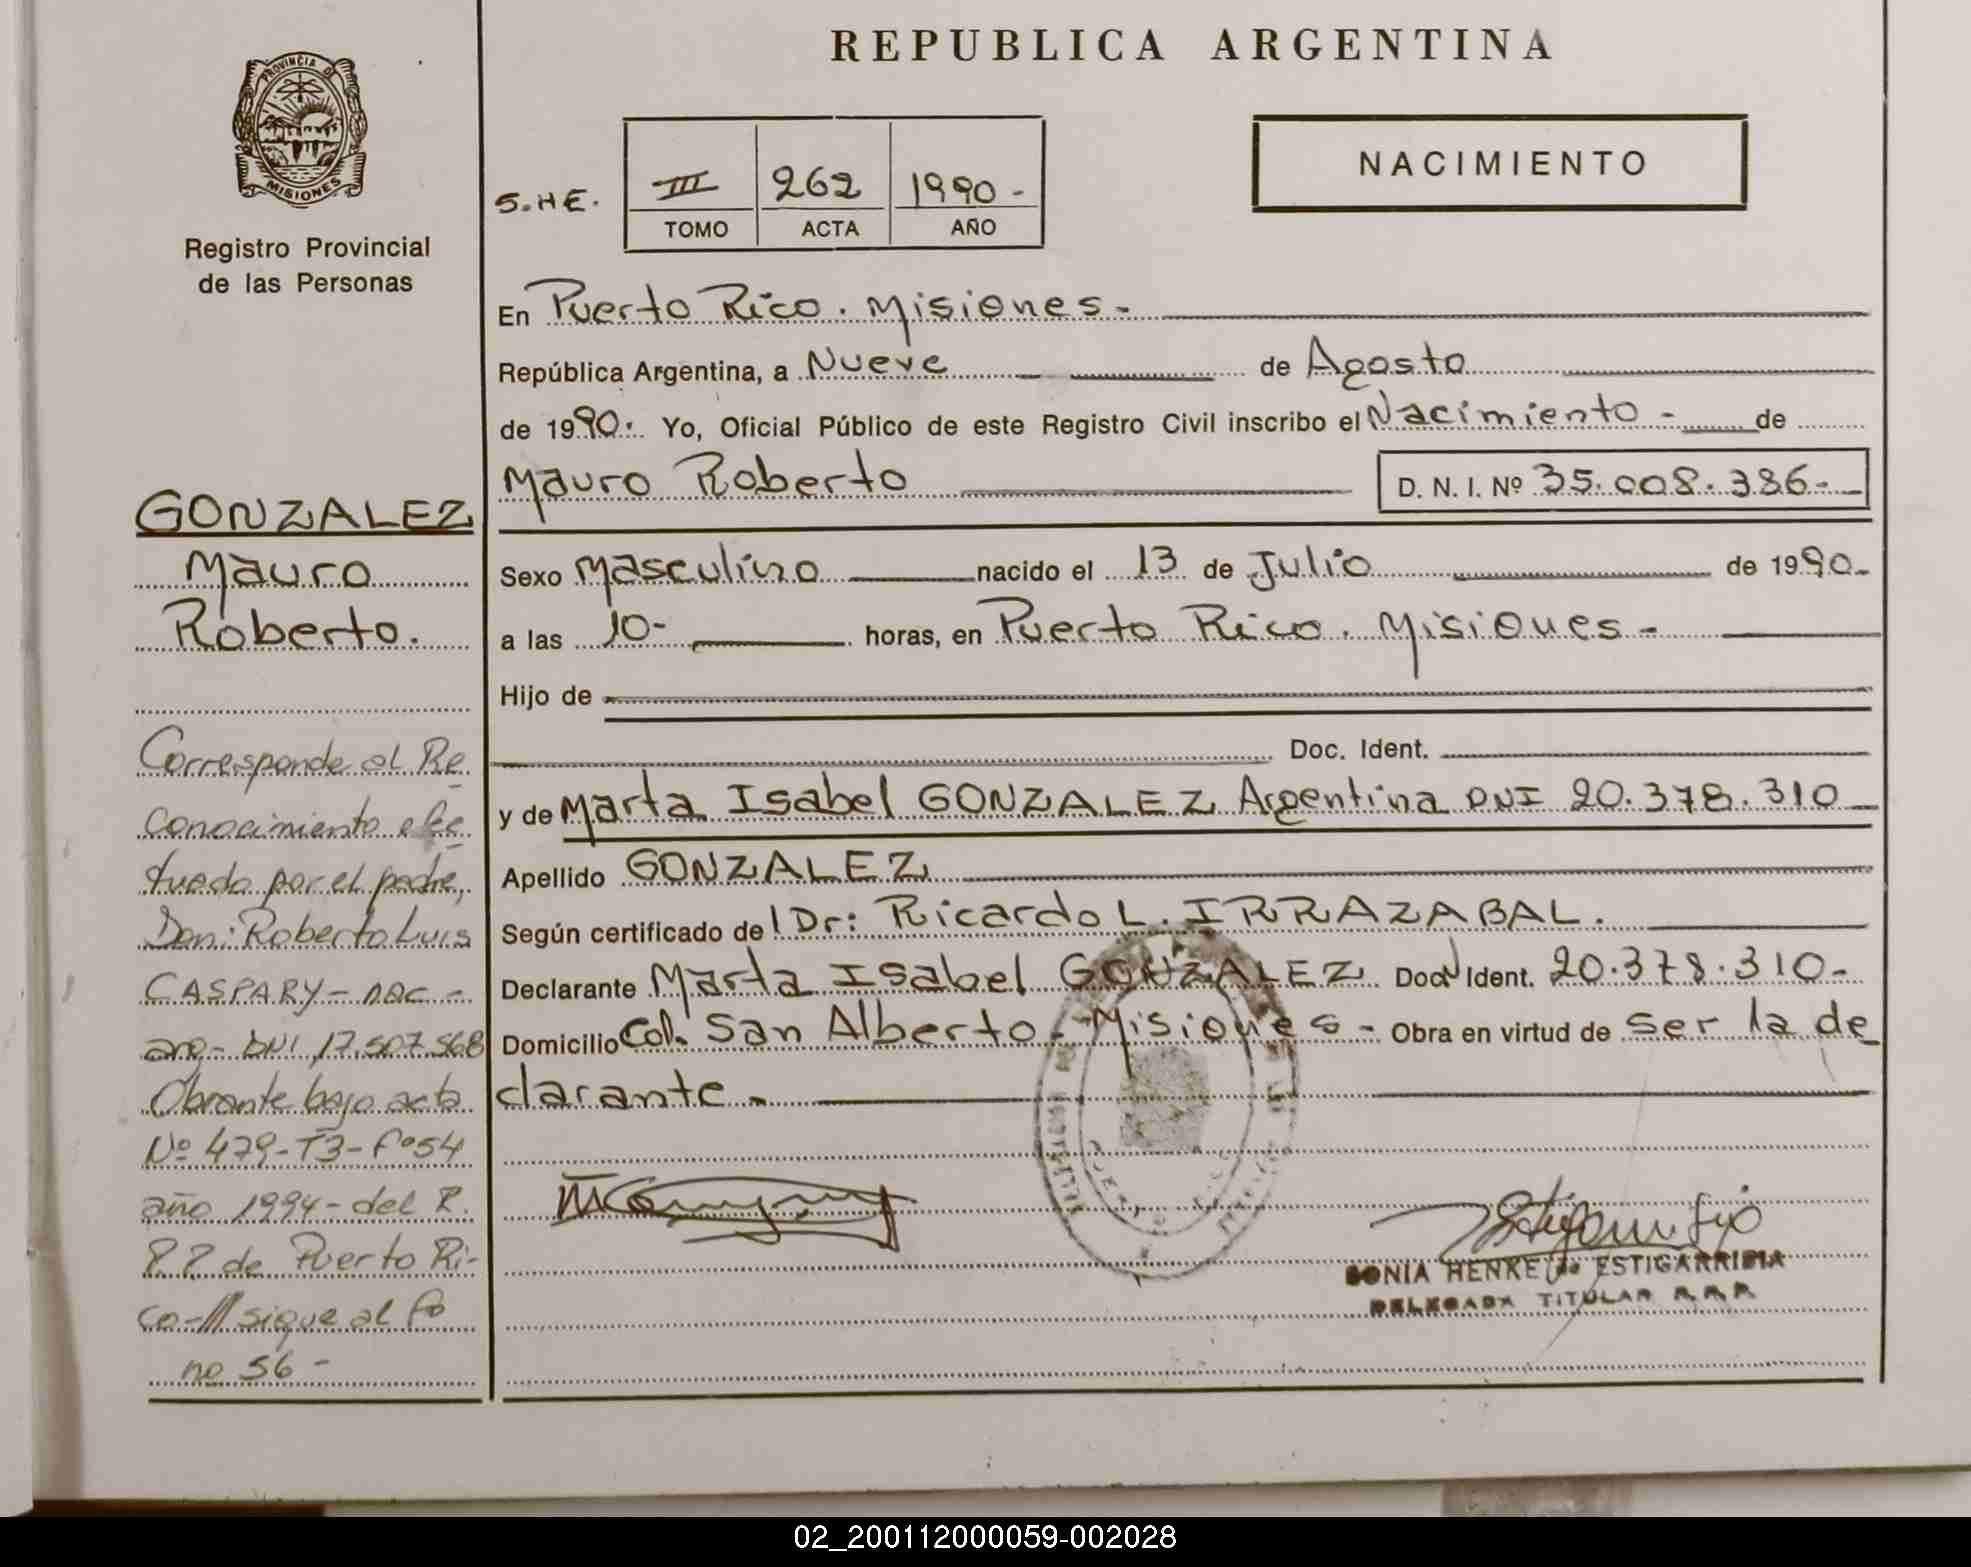 REPUBLICA ARGENTINA
PROVINCIA DE
MISIONES
Registro Provincial
de las Personas
S.HE.
III 262 1990-
TOMO ACTA AÑO
NACIMIENTO
En Puerto Rico. Misiones-
República Argentina, a Nueve de Agosto
de 1990. Yo, Oficial Público de este Registro Civil inscribo el Nacimiento - de
Mauro Roberto D. N. I. Nº 35.008.386-
Sexo Masculino nacido el 13 de Julio de 1990-
a las 10- horas, en Puerto Rico. Misiones-
Hijo de
Doc. Ident.
y de Marta Isabel GONZALEZ Argentina DNI 20.378.310
Apellido GONZALEZ
Según certificado del Dr: Ricardo L. IRRAZABAL.
Declarante Marta Isabel GONZALEZ Doc Ident. 20.378.310-
Domicilio Col. San Alberto - Misiones - Obra en virtud de ser la de
clarante.-
SONIA HENKE de ESTIGARRIBIA
DELEGADA TITULAR R.R.P.
GONZALEZ
Mauro
Roberto.
Corresponde al Re
conocimiento efec
tuado por el padre,
Don: Roberto Luis
CASPARY- nac.-
arg- DNI 17.507.568
Obrante bajo acta
Nº 479-T3-Fº54
año 1994- del R.
P.P de Puerto Ri-
co-// sigue al fo
no 56-
02_200112000059-002028